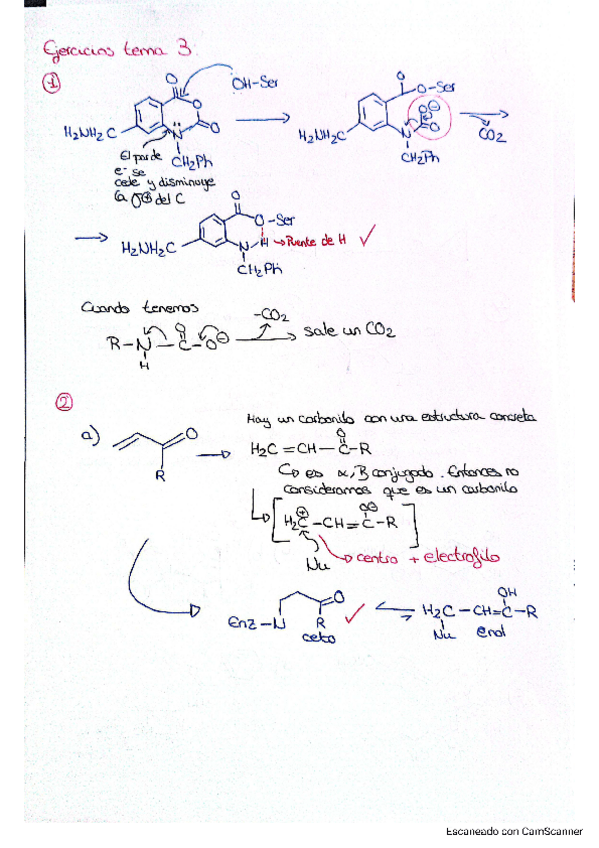 Ejercicios tema 3
1
O
OH-Ser
O
O
N
H₂NH₂C
CH₂Ph
El par de
e⁻ se
cede y disminuye
la δ⊕ del C
O
O-Ser
O ⊖
O
N
H₂NH₂C
CH₂Ph
CO₂
O
O-Ser
H₂NH₂C
N H → Puente de H ✓
CH₂Ph
Cuando tenemos
-CO₂
R-N-C-O⊖
O
H
sale un CO₂
2
a)
O
R
Hay un carbonilo con una estructura concreta
O
H₂C=CH-C-R
↳ es α,β conjugado. Entonces no
consideramos que es un carbonilo
⊕ O⊖
[H₂C-CH=C-R]
Nu
centro + electrofilo
O
Enz-N R ✓
ceto
OH
H₂C-CH=C-R
Nu enol
Escaneado con CamScanner